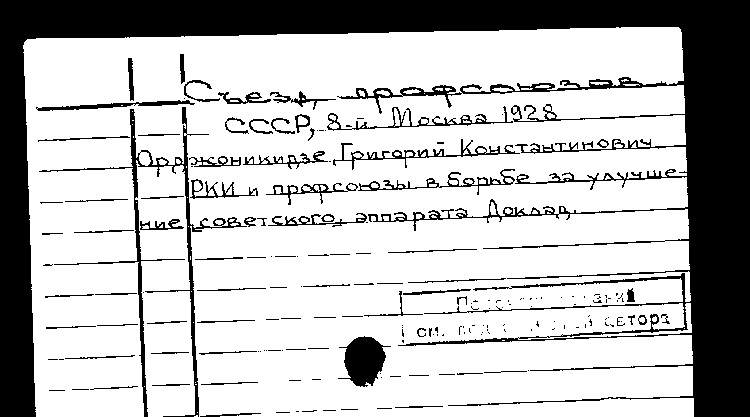 Съезд профсоюзов
СССР, 8-й Москва 1928
Орджоникидзе, Григорий Константинович
РКИ и профсоюзы в борьбе за улучше-
ние советского аппарата Доклад.
см. автора